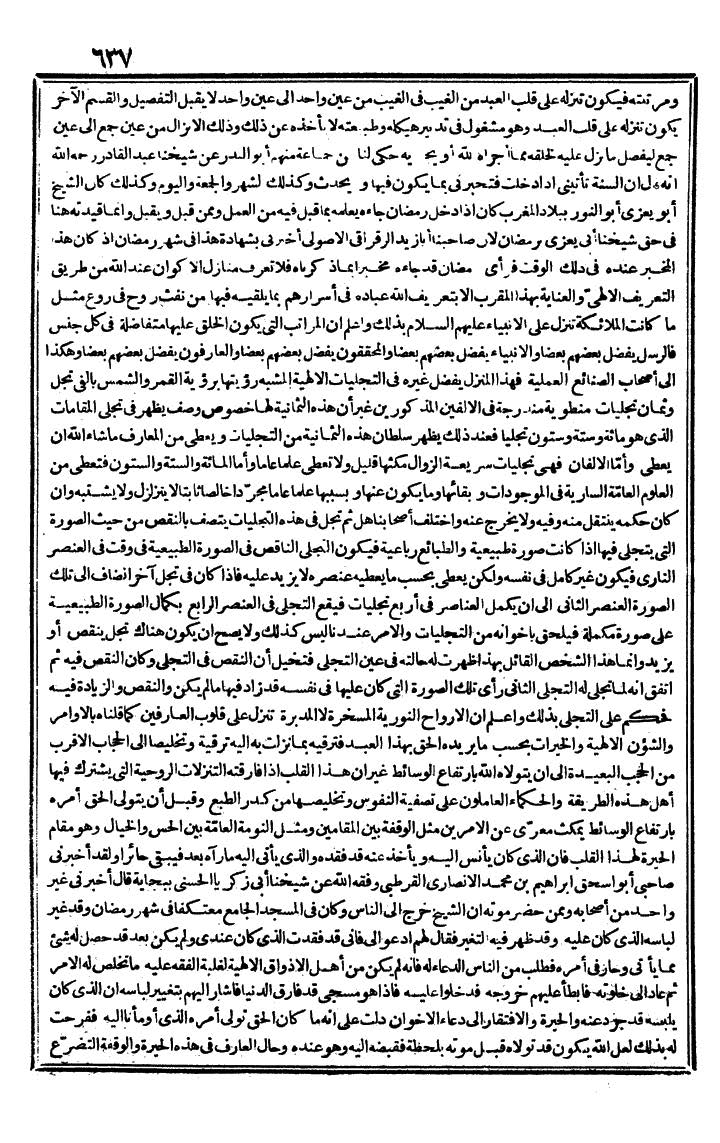 ٦٣٧
ومرتبته فيكون تنزله على قلب العبد من الغيب فى الغيب من عين واحد الى عين واحد لا يقبل التفصيل والقسم الآخر
يكون تنزله على قلب العبد وهو مشغول فى تدبير هيكله وطبيعته لا يأخذه عن ذلك وذلك الانزال من عين جمع الى عين
جمع ليفصل ما نزل عليه لخلقه مما أجراه الله أو يجريه حكى لنا من جماعة منهم أبو البدر عن شيخنا عبد القادر رحمه الله
انه قال ان السنة تأتينى اذا دخلت فتخبرنى بما يكون فيها ويحدث وكذلك الشهر والجمعة واليوم وكذلك كان الشيخ
أبو يعزى أبو النور ببلاد المغرب كان اذا دخل رمضان جاءه يعلمه بما قبل فيه من العمل وممن قبل ويقبل وانما قيدته هنا
فى حق شيخنا أبى يعزى برمضان لان صاحبنا أبا زيد الرقراقى الاصولى أخبرنى بشهادة هذا فى شهر رمضان اذ كان هذا
المخبر عنده فى ذلك الوقت فرأى رمضان قد جاءه مخبرا بما ذكرناه فلا تعرف منازل الاكوان عند الله من طريق
التعريف الالهىّ والعناية بهذا المقرب الا بتعريف الله عباده فى أسرارهم بما يلقيه فيها من نفث روح فى روع مثل
ما كانت الملائكة تنزل على الانبياء عليهم السلام بذلك واعلم ان المراتب التى يكون الخلق عليها متفاضلة فى كل جنس
فالرسل يفضل بعضهم بعضا والانبياء يفضل بعضهم بعضا والمحققون يفضل بعضهم بعضا والعارفون يفضل بعضهم بعضا وهكذا
الى أصحاب الصنائع العملية فهذا المنزل يفضل غيره فى التجليات الالهية المشبه رؤيتها برؤية القمر والشمس بالنى تجل
وثمان تجليات منطوية مندرجة فى الالفين المذكورين غير أن هذه الثمانية لها خصوص وصف يظهر فى تجلى المقامات
الذى هو مائة وستة وستون تجليا فعند ذلك يظهر سلطان هذه الثمانية من التجليات ويعطى من المعارف ما شاء الله ان
يعطى وأمّا الالفان فهى تجليات سريعة الزوال مكثها قليل ولا تعطى علما عاما وأما المائة والستة والستون فتعطى من
العلوم العامّة السارية فى الموجودات وبقائها وما يكون عنها وبسببها علما عاما مجرّدا خالصا ثابتا لا يتزلزل ولا يشتبه وان
كان حكمه ينتقل منه وفيه ولا يخرج عنه واختلف أصحابنا هل ثم تجل فى هذه التجليات يتصف بالنقص من حيث الصورة
التى يتجلى فيها اذا كانت صورة طبيعية والطبائع رباعية فيكون التجلى الناقص فى الصورة الطبيعية فى وقت فى العنصر
النارى فيكون غير كامل فى نفسه ولكن يعطى بحسب ما يعطيه عنصره لا يزيد عليه فاذا كان فى تجل آخر انضاف الى تلك
الصورة العنصر الثانى الى ان يكمل العناصر فى أربع تجليات فيقع التجلى فى العنصر الرابع بكمال الصورة الطبيعية
على صورة مكملة فيلحق باخوانه من التجليات والامر عندنا ليس كذلك ولا يصح ان يكون هناك تجل ينقص أو
يزيد وانما هذا الشخص القائل بهذا ظهرت له حالته فى عين التجلى فتخيل أن النقص فى التجلى وكان النقص فيه ثم
اتفق انه لما تجلى له التجلى الثانى رأى تلك الصورة التى كان عليها فى نفسه قد زاد فيها ما لم يكن والنقص والزيادة فيه
فحكم على التجلى بذلك واعلم ان الارواح النورية المسخرة لا المدبرة تنزل على قلوب العارفين كما قلناه بالاوامر
والشؤن الالهية والخيرات بحسب ما يريده الحق بهذا العبد فترقيه بما نزلت به اليه ترقية وتخليصا الى الحجاب الاقرب
من الحجب البعيدة الى ان يتولاه الله بارتفاع الوسائط غير ان هذا القلب اذا فارقته التنزلات الروحية التى يشترك فيها
أهل هذه الطريقة والحكماء العاملون على تصفية النفوس وتخليصها من كدر الطبع وقبل أن يتولى الحق أمره
بارتفاع الوسائط يمكث معرّى عن الامرين مثل الوقفة بين المقامين ومثل النومة العامّة بين الحس والخيال وهو مقام
الحيرة لهذا القلب فان الذى كان يأنس اليه ويأخذ عنه قد فقده والذى يأتى اليه ما رآه بعد فيبقى حائرا ولقد أخبرنى
صاحبى أبو اسحق ابراهيم بن محمد الانصارى القرطبى وفقه الله عن شيخنا أبى زكريا الحسنى ببجاية قال أخبرنى غير
واحد من أصحابه وممن حضر موته ان الشيخ خرج الى الناس وكان فى المسجد الجامع معتكفا فى شهر رمضان وقد غير
لباسه الذى كان عليه وقد ظهر فيه التغير فقال لهم ادعوا لى فانى قد فقدت الذى كان عندى ولم يكن بعد قد حصل له شئ
مما يأتى وحار فى أمره فطلب من الناس الدعاء له فانه لم يكن من أهل الاذواق الالهية لغلبة الفقه عليه ما تخلص له الامر
ثم عاد الى خلوته فابطأ عليهم خروجه فدخلوا عليه فاذا هو مسجى قد فارق الدنيا فاشار اليهم بتغيير لباسه ان الذى كان
يلبسه قد جرد عنه والحيرة والافتقار الى دعاء الاخوان دلت على انه ما كان الحق تولى أمره الذى أومأنا اليه ففرحت
له بذلك لعل الله يكون قد تولاه قبل موته بلحظة فقبضه اليه وهو عنده وحال العارف فى هذه الحيرة والوقفة التضرّع